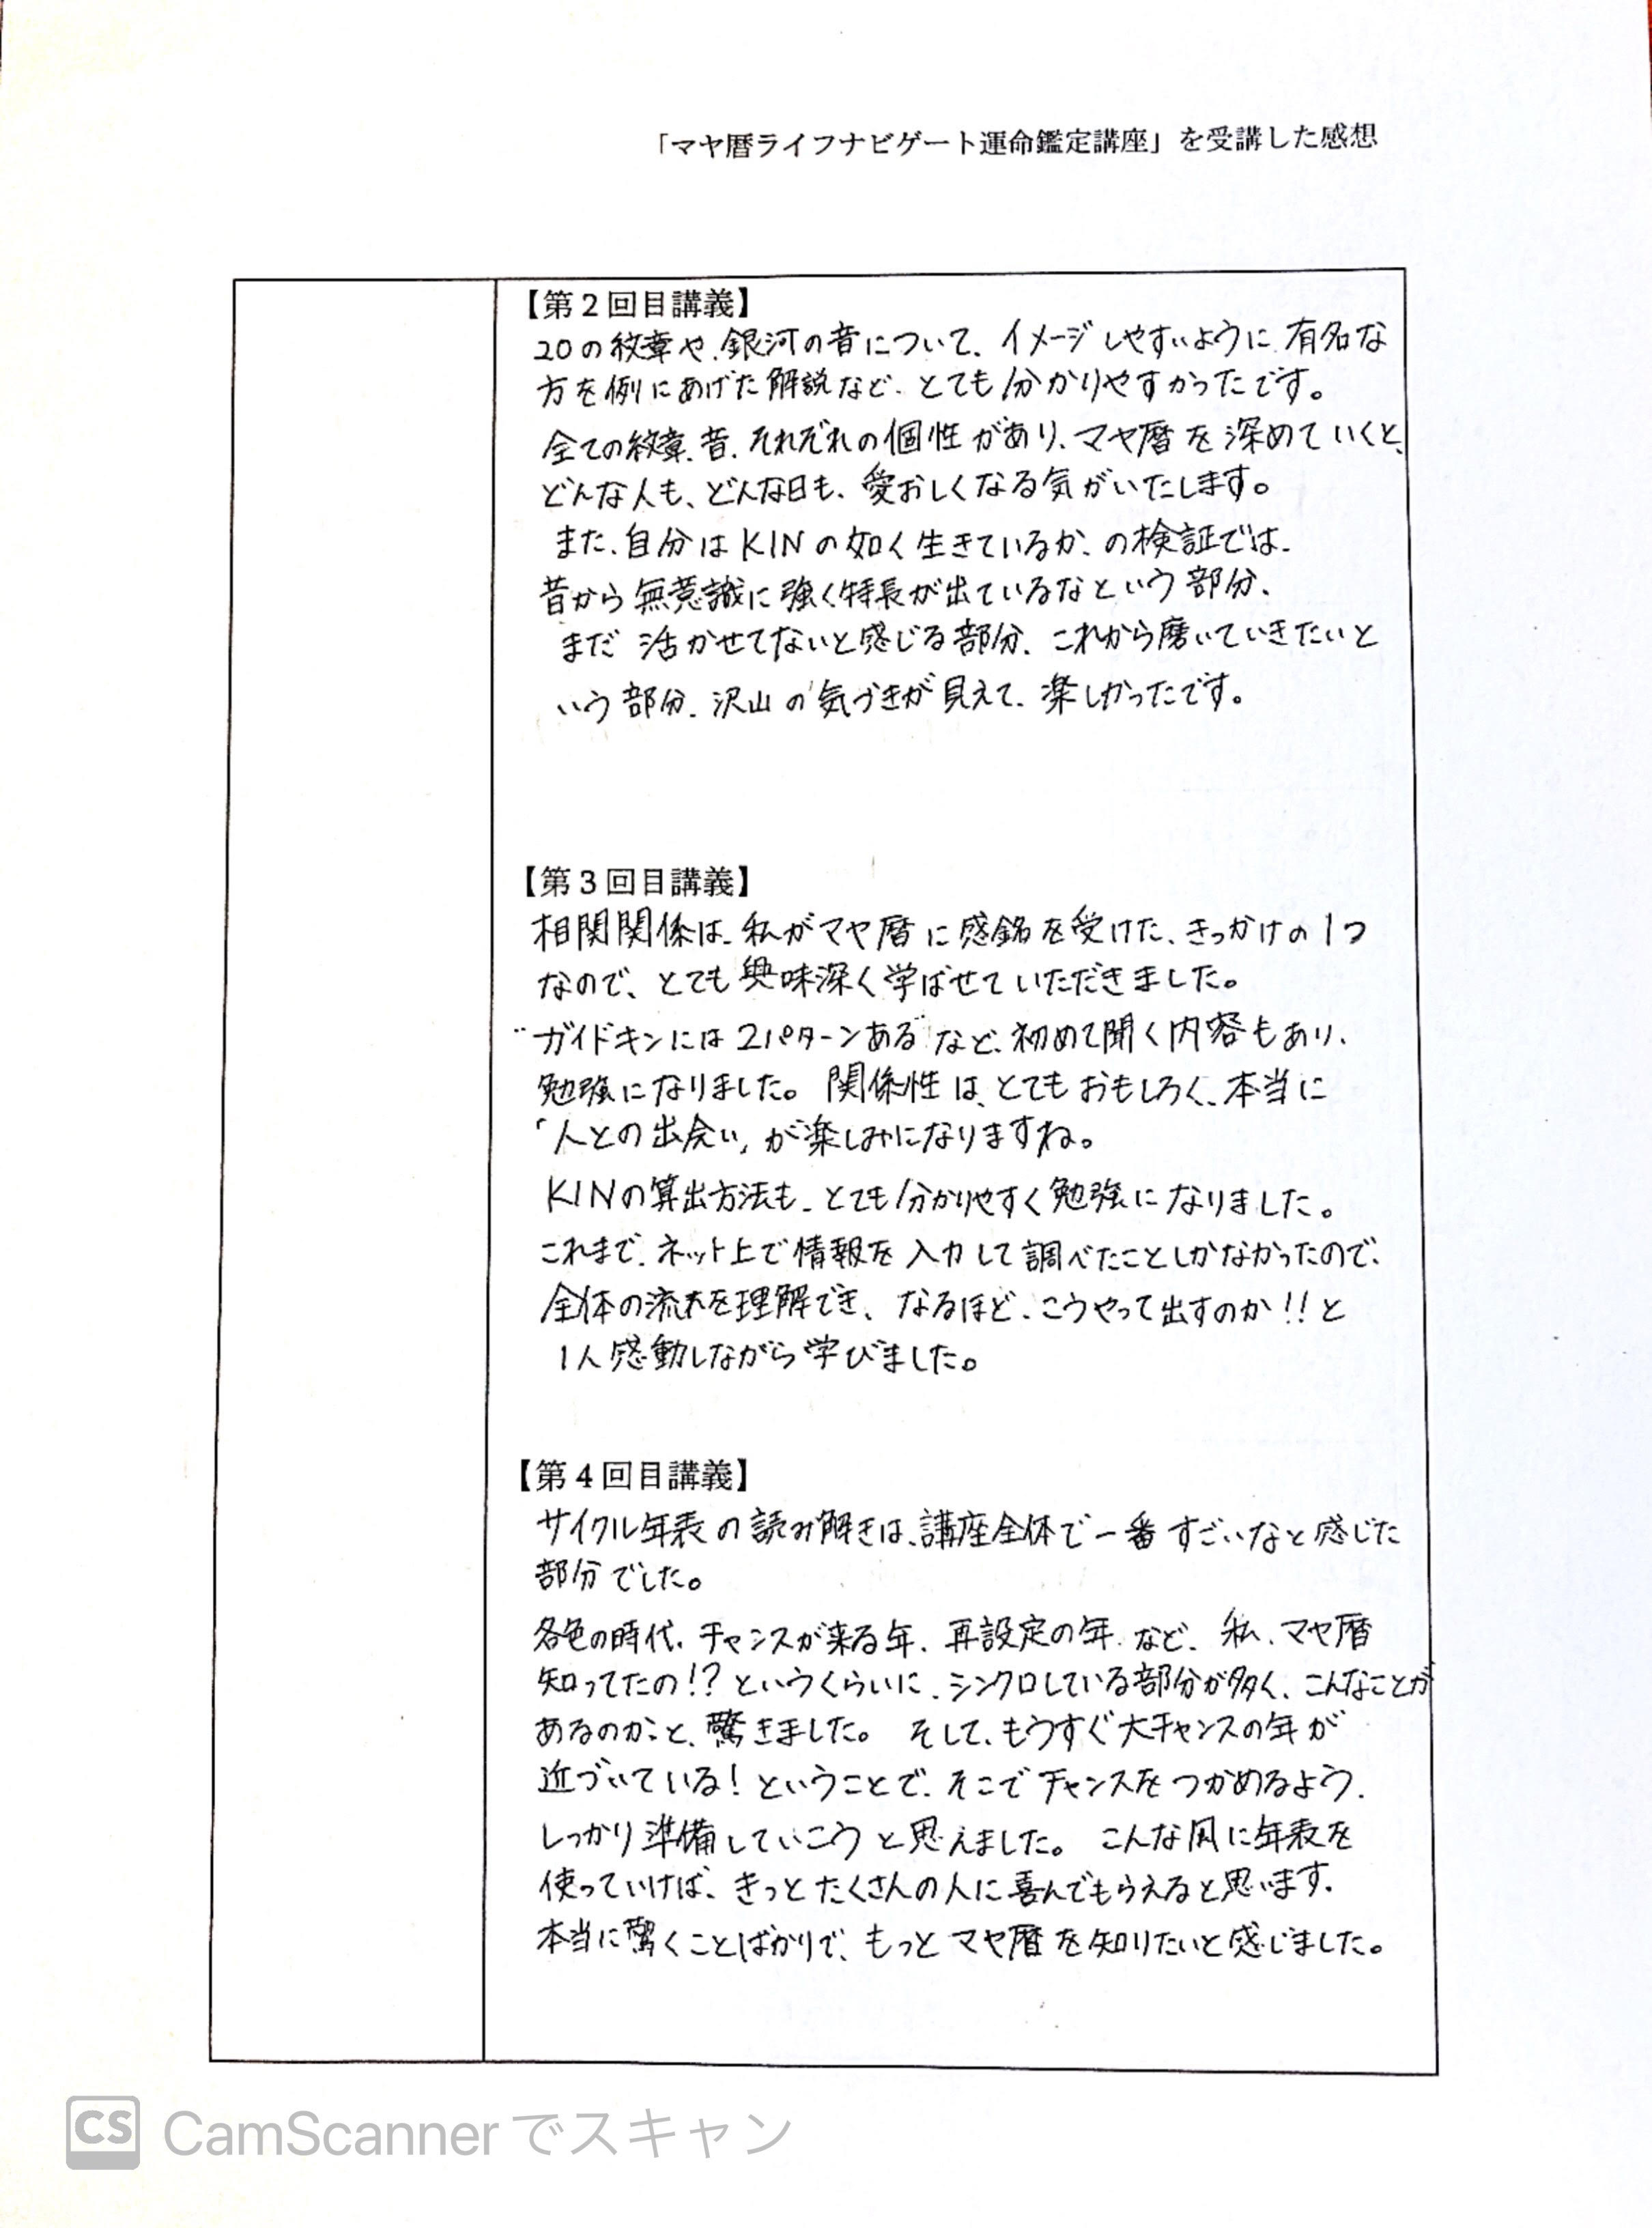 「マヤ暦ライフナビゲート運命鑑定講座」を受講した感想
【第２回目講義】
20の紋章や、銀河の音について、イメージしやすいように有名な
方を例にあげた解説など、とても分かりやすかったです。
全ての紋章、音、それぞれの個性があり、マヤ暦を深めていくと、
どんな人も、どんな日も、愛おしくなる気がいたします。
また、自分はKINの如く生きているか、の検証では、
昔から無意識に強く特長が出ているなという部分、
まだ活かせてないと感じる部分、これから磨いていきたいと
いう部分、沢山の気づきが見えて、楽しかったです。
【第３回目講義】
相関関係は、私がマヤ暦に感銘を受けた、きっかけの1つ
なので、とても興味深く学ばせていただきました。
"ガイドキンには2パターンある"など、初めて聞く内容もあり、
勉強になりました。関係性は、とてもおもしろく、本当に
「人との出会い」が楽しみになりますね。
KINの算出方法も、とても分かりやすく勉強になりました。
これまで、ネット上で情報を入力して調べたことしかなかったので、
全体の流れを理解でき、なるほど、こうやって出すのか!!と
1人感動しながら学びました。
【第４回目講義】
サイクル年表の読み解きは、講座全体で一番すごいなと感じた
部分でした。
各色の時代、チャンスが来る年、再設定の年、など、私、マヤ暦
知ってたの!?というくらいに、シンクロしている部分が多く、こんなことが
あるのかと、驚きました。 そして、もうすぐ大チャンスの年が
近づいている!ということで、そこでチャンスをつかめるよう、
しっかり準備していこうと思えました。 こんな風に年表を
使っていけば、きっとたくさんの人に喜んでもらえると思います。
本当に驚くことばかりで、もっとマヤ暦を知りたいと感じました。
CS CamScannerでスキャン